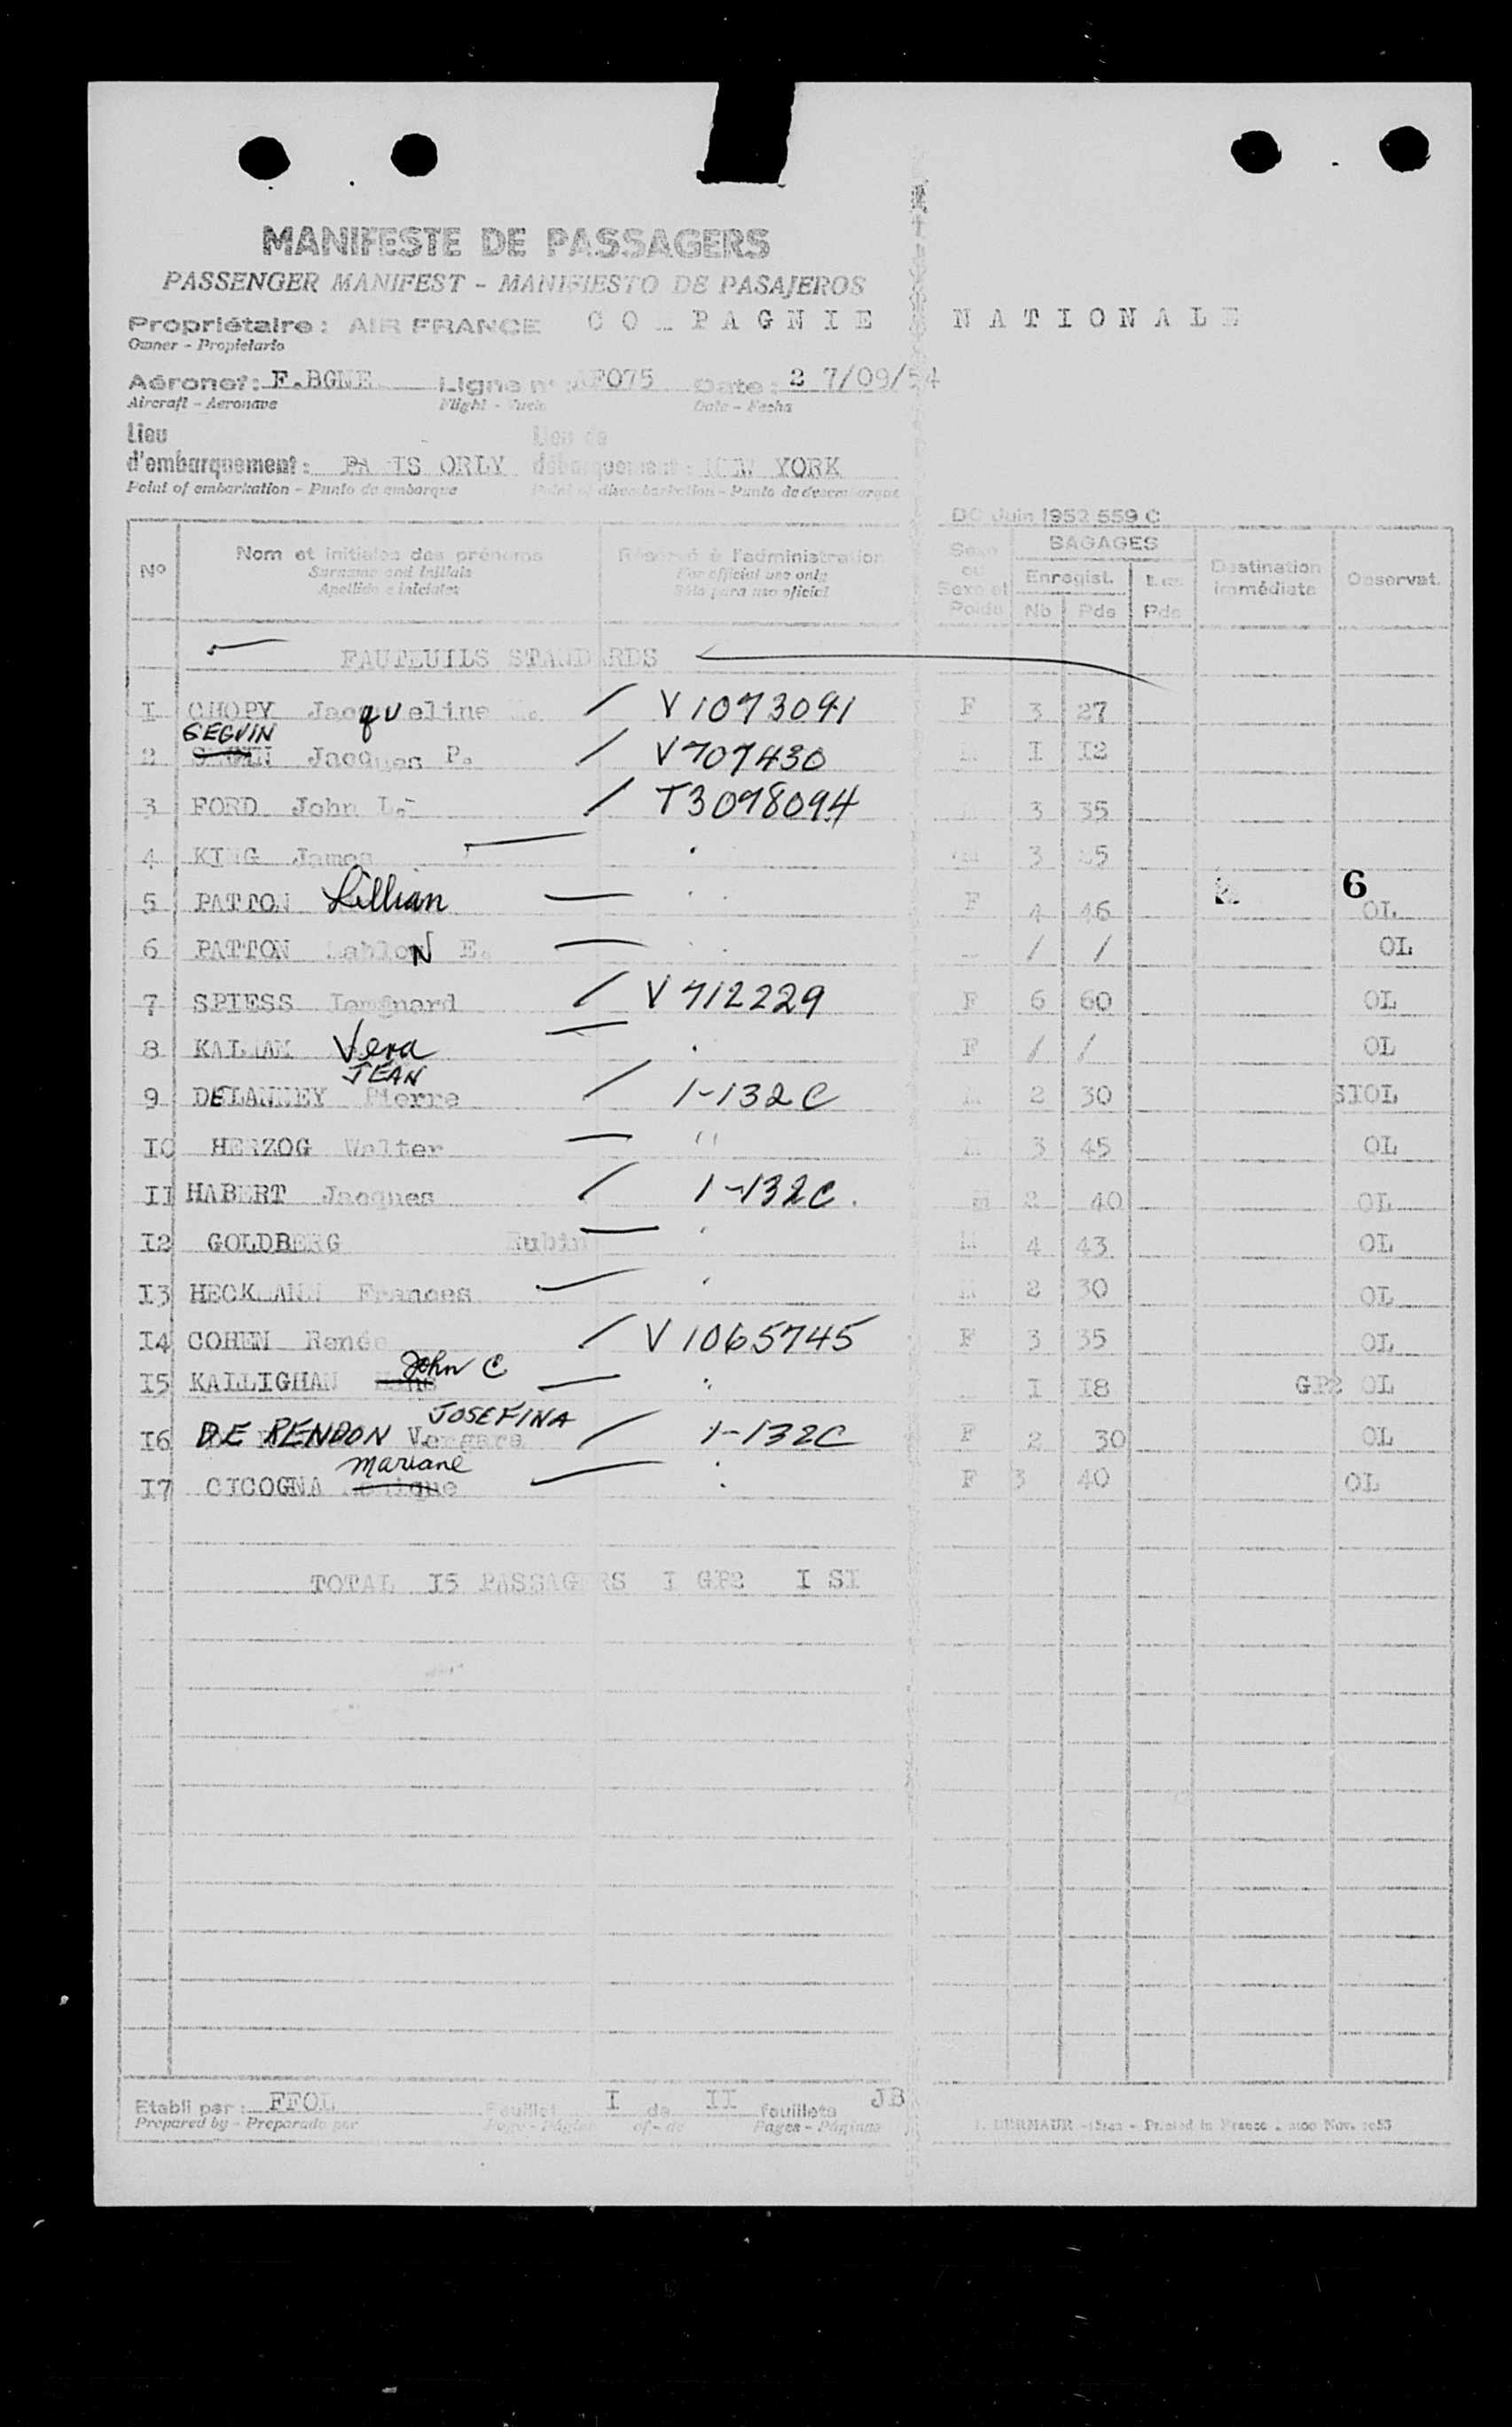 MANIFESTE DE PASSAGERS
PASSENGER MANIFEST - MANIFIESTO DE PASAJEROS
Propriétaire : AIR FRANCE CO PAGNIE NATIONALE
Owner - Propietario
Aéronef : F.BGNE Ligne n° : F075 Date : 2 7/09/54
Aircraft - Aeronave Flight - Vuelo Date - Fecha
Lieu Lieu de
d'embarquement : PA IS ORLY débarquement : NEW YORK
Point of embarkation - Punto de embarque Point of disembarkation - Punto de desembarque
DC Juin 1952 559 C
Nº Nom et initiales des prénoms Réservé à l'administration Sexe ou Sexe et Poids BAGAGES Destination immédiate Observat.
Surname and initials For official use only Enregist.
Apellido e iniciales Sólo para uso oficial Nb Pds Pds
FAUTEUILS STANDARDS
I CHOPY Jacqueline / V1073091 F 3 27
SEGUIN
2 Jacques P. / V707430 I I2
3 FORD John L. / T3098094 3 35
4 KING James 3 5
6
5 PATTON Lillian F 4 46 OL
6 PATTON N E. / / OL
7 SPIESS / V712229 F 6 60 OL
8 KALMAN Vera F / / OL
JEAN
9 DELANNEY Pierre / 1-132C 2 30 SIOL
IO HERZOG Walter — " 3 45 OL
II HABERT Jacques / 1-132C. M 2 40 OL
I2 GOLDBERG Rubin M 4 43 OL
I3 HECKMANN Frances 2 30 OL
I4 COHEN Renée / V1065745 F 3 35 OL
John C
I5 KALLIGHAN I I8 GP2 OL
JOSEFINA
I6 DE RENDON Vergara / 1-132C F 2 30 OL
Mariane
I7 CICOGNA F 3 40 OL
TOTAL I5 PASSAGERS I GP2 I SI
Etabli par : FFOL Feuillet I de II feuillets JB
Prepared by - Preparado por Page - Página of - de Pages - Páginas
Printed in France Nov. 1953